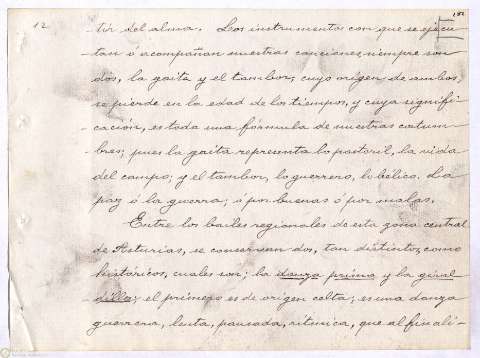 12
152
tir del alma. Los instrumentos con que se ejecu-
tan ó acompañan nuestras canciones, siempre son
dós, la gaita y el tambor; cuyo origen de ambos,
se pierde en la edad de los tiempos, y cuya signifi-
cación, es toda una fórmula de nuestras costum-
bres; pues la gaita representa lo pastoril, la vida
del campo; y el tambor, lo guerrero, lo bélico. La
paz ó la guerra; ó por buenas ó por malas.
Entre los bailes regionales de esta zona central
de Asturias, se conservan dos, tan distintos, como
históricos, cuales son; la danza prima y la giral-
dilla; el primero es de origen celta; es una danza
guerrera, lenta, pausada, rítmica, que al fin ali-